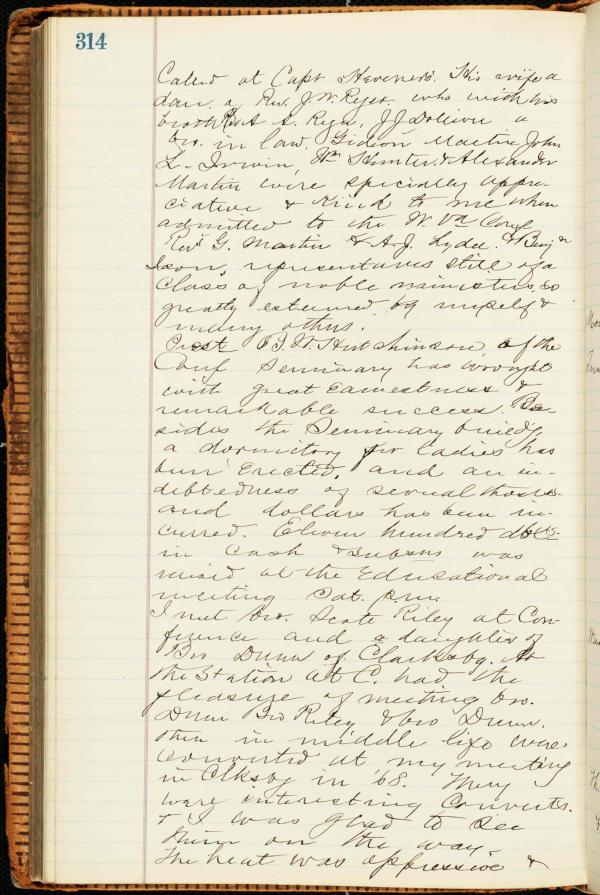 314
Called at Capt Heveners. His wife a
dau. of Rev. J. W. Reger. who with his
broth Rev A. A. Reger, J J Dolliver a
bro. in law. Gideon Martin, John
L. Irwin, Wm Hunter, & Alexander
Martin were specially appre
ciative & kind to me when
admitted to the W. Va Conf
Revs G. Martin & A. J. Lyda. & Benj n
Ison, representatives still of a
class of noble ministers so
greatly esteemed by myself &
many others.
Prest B. W. Hutchinson, of the
Conf Seminary has wrought
with great earnestness &
remarkable success. Be-
sides the Seminary buildg
a dormitory for ladies has
been erected, and an in-
debtedness of several thous-
and dollars has been in-
curred. Eleven hundred dolls
in cash & subsns was
raised at the Educational
meeting Sat. p.m.
I met bro. Scott Riley at Con-
ference and a daughter of
Bro Dunn of Clarksbg. At
the Station at C. had the
pleasure of meeting bro.
Dunn Bro Riley & bro Dunn.
then in middle life were
converted at my meeting
in Clksbg in '68. They
were interesting converts.
& I was glad to see
them on the way.
The heat was oppressive &